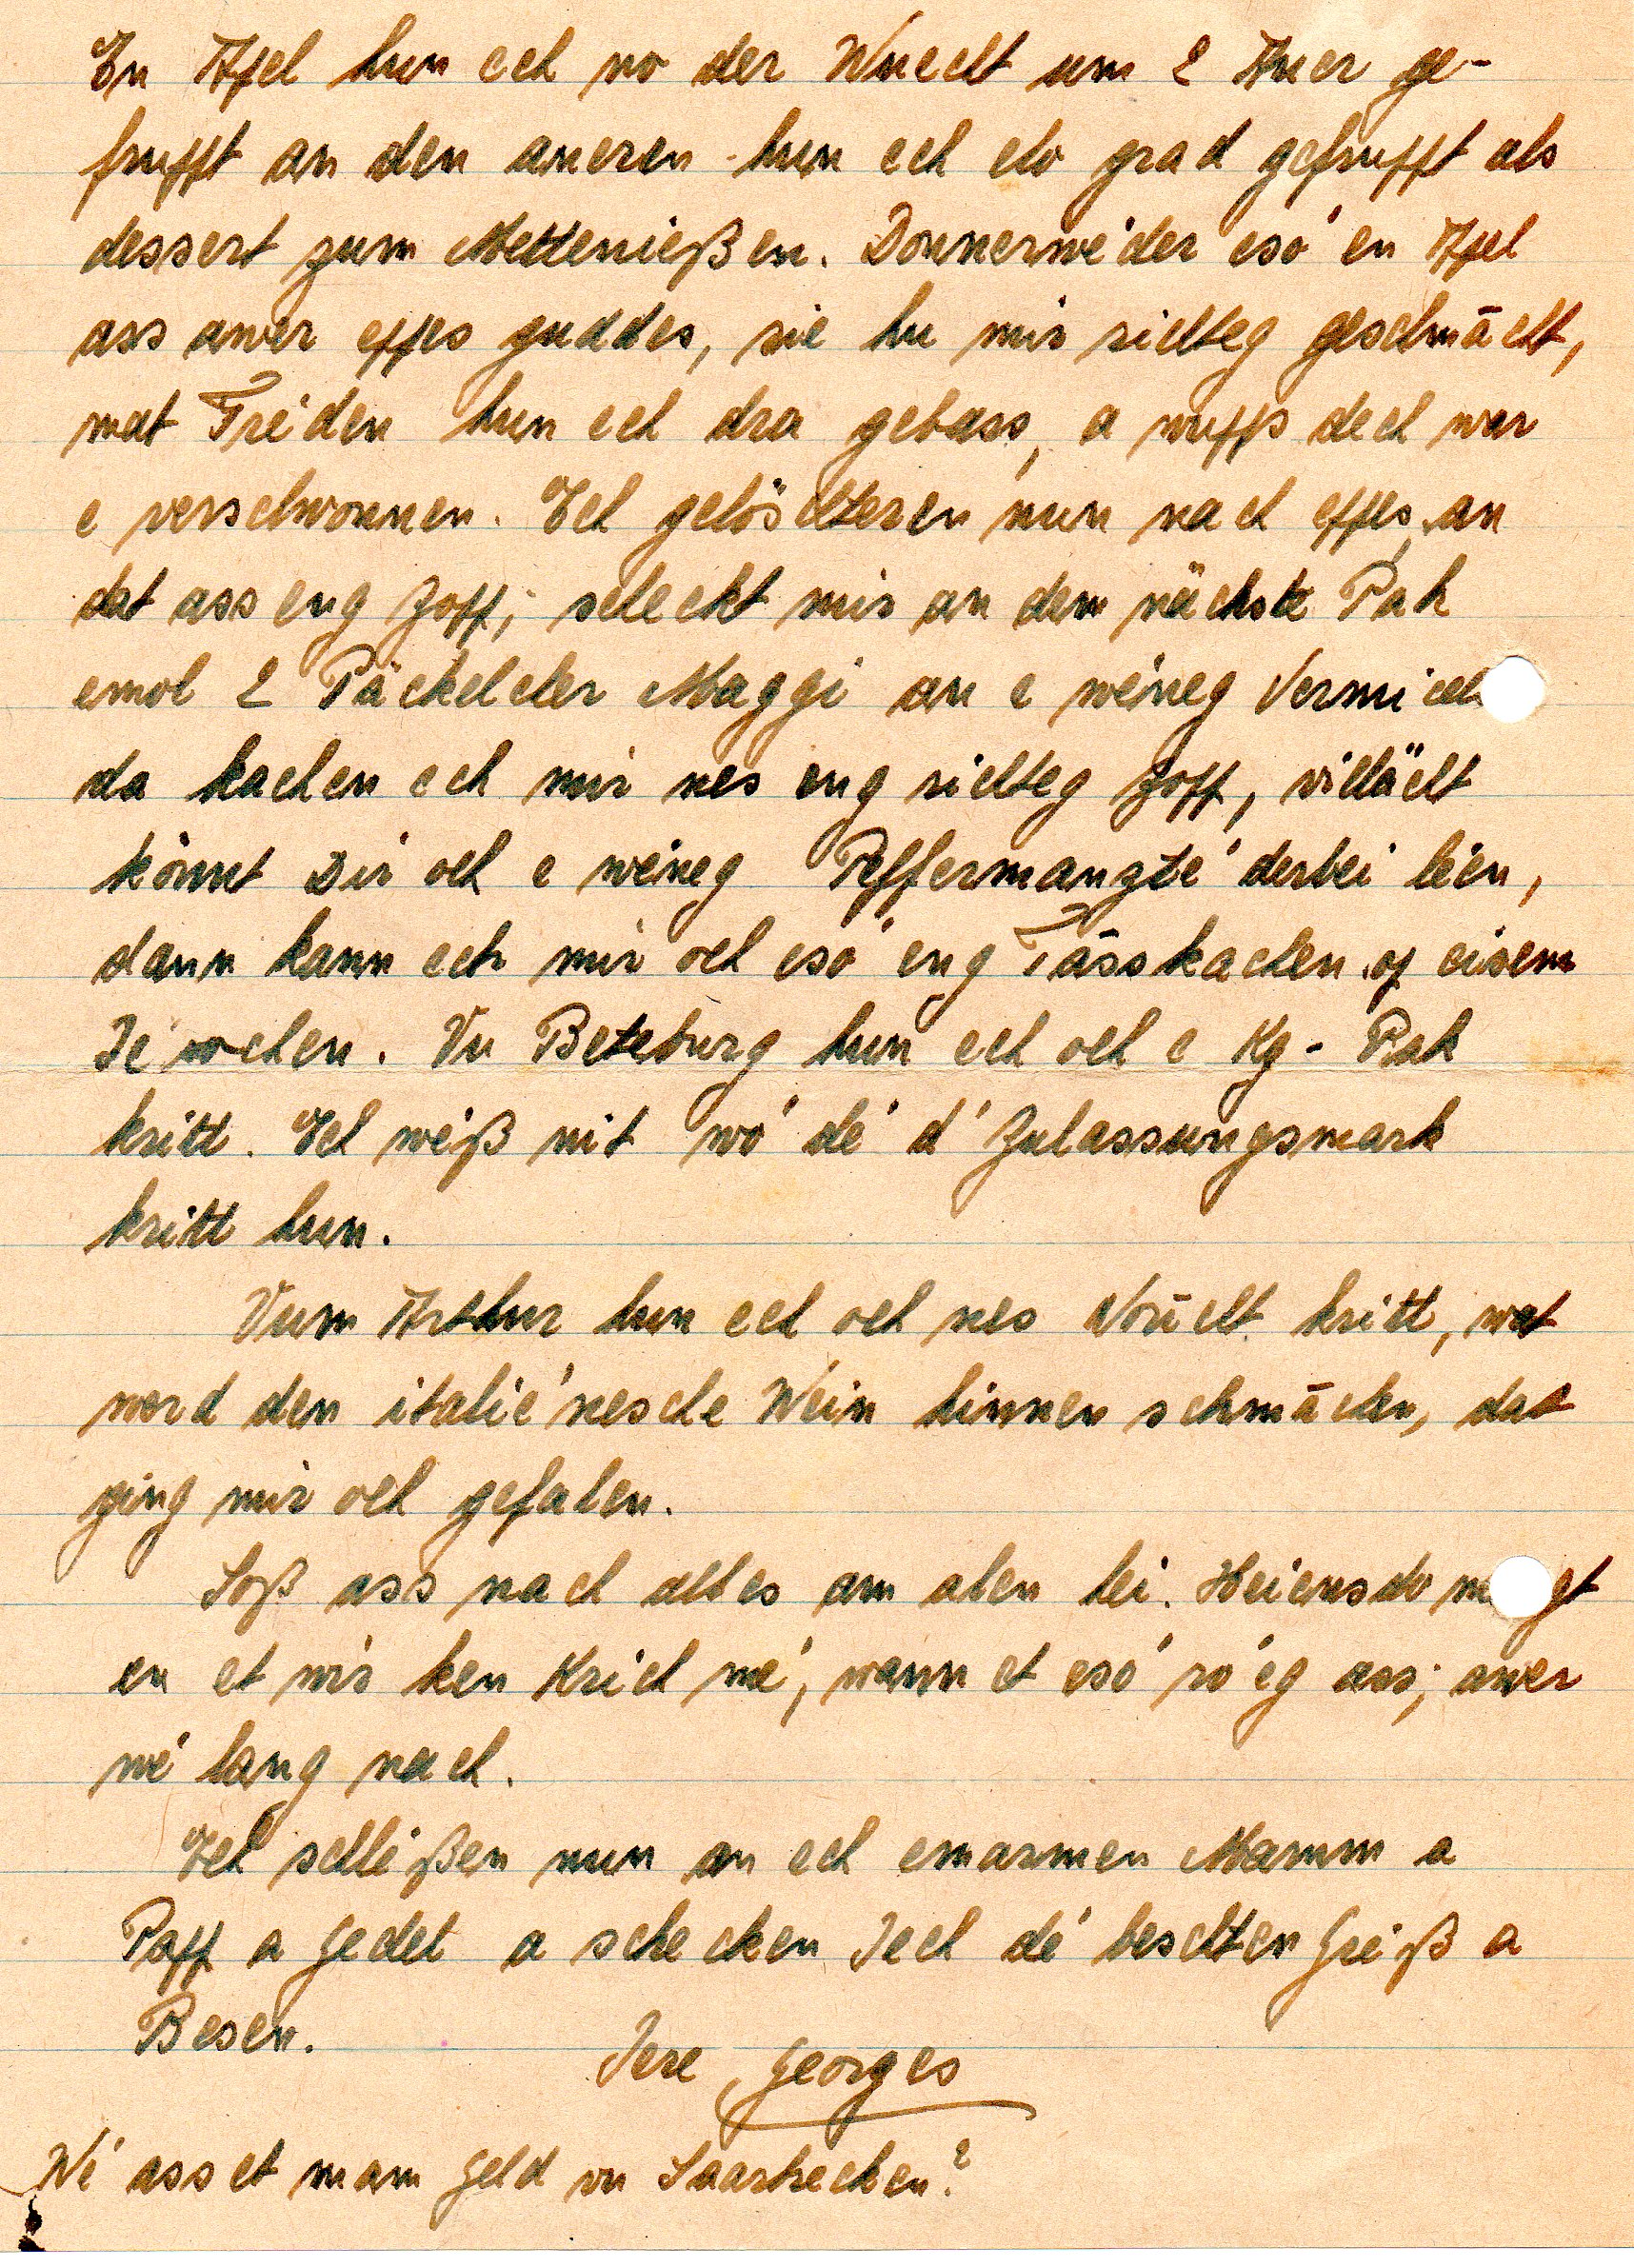 En Apel hun ech no der Wuecht um 2 Auer ge-
frupst an den aneren hun ech elo grad gefrupst als
dessert zum Mettenießen. Donnerwé'der eso' en Apel
ass awer eppes guddes, sie hu mir richteg geschmācht,
mat Fré'den hun ech dra gebass, a wupps dech war
e verschwonnen. Ech gelöschteren nun nach eppes, an
dat ass eng Zopp, scheckt mir an dem nächste Pak
emol 2 Päckelcher Maggi an e wéneg Vermicell
da kachen ech mir nes eng richteg Zopp, villäicht
könnt Dir och e wéneg Peffermanzté' derbei léen,
dann kann ech mir och eso' eng Täss kachen op eisem
Ié'wchen. Vu Beteburg hun ech och e Kg-Pak
kritt. Ech wéß nit wo' dé' d'Zulassungsmark
kritt hun.
Vum Arthur hun ech och nes Noūcht kritt, wat
werd den italié'nesche Wein hinnen schmāchen, dat
ging mir och gefalen.
Soß ass nach alles am alen hei. Heiansdo m gt
en et wir ken Krich mé', wann et eso' ro'eg ass; awer
wé' lang nach.
Ech schléßen nun an ech emarmen Mamm a
Papp a Gedel a schecken Iech dé' beschten Gréß a
Besen.
Iere Georges
Wé' ass et mam Geld vu Saarbrecken?